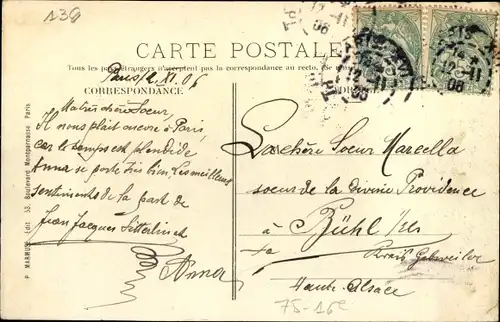 139
CARTE POSTALE
Tous les pays étrangers n'acceptent pas la correspondance au recto, se
Paris 12 XI. 06
CORRESPONDANCE
Ma très chère Soeur,
Il nous plaît encore à Paris,
car le temps est splendide
Anna se porte très bien. Les meilleurs
sentiments de la part de
Jean Jacques
Anna
P. MARMUSE Edit. 53, Boulevard Montparnasse, Paris
12-11
06
12-11
06
La chère Soeur Marcella
soeur de la Divine Providence
à Bühl
Kreis Gebweiler
Haute-Alsace
75-15e